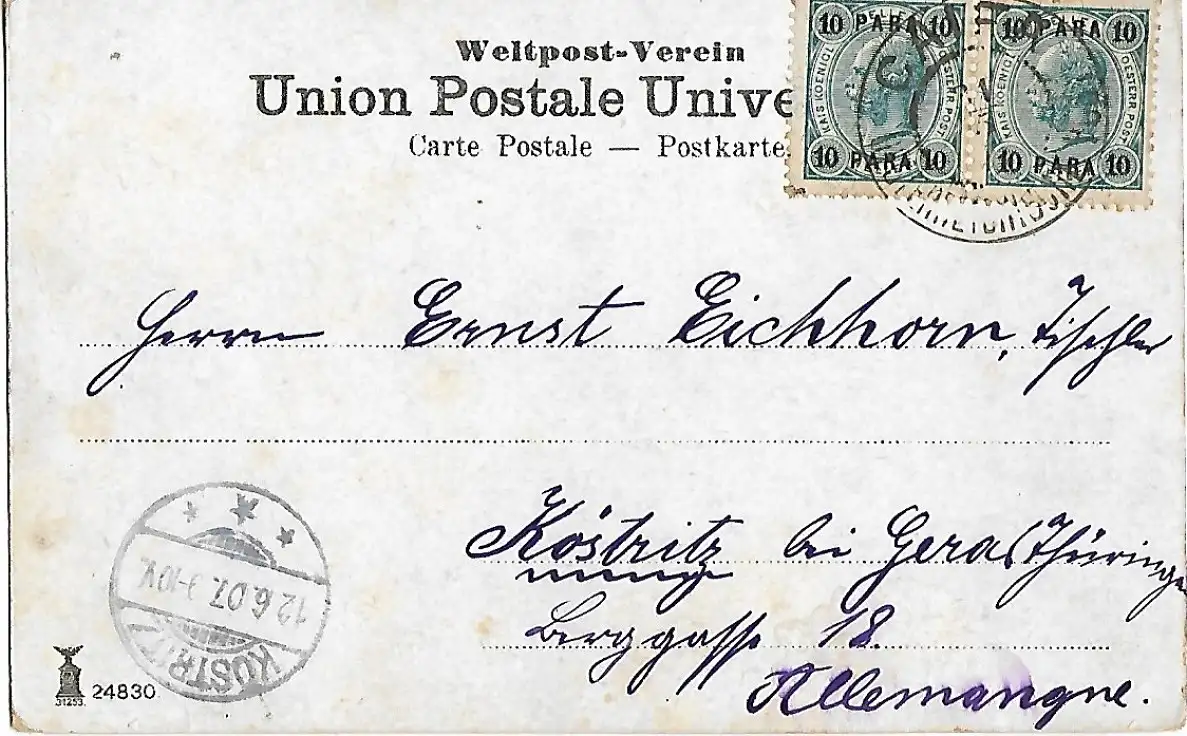 Weltpost-Verein
Union Postale Unive
Carte Postale — Postkarte
10 PARA 10
KAIS KOENIGL
OESTERR POST
10 PARA 10
10 PARA 10
KAIS KOENIGL
OESTERR POST
10 PARA 10
Herrn Ernst Eichhorn, Tischler
Köstritz bei Gera (Thüringe
Berggasse 18.
Allemangne.
12.6.07.9-10V.
KÖSTRITZ
31253.
24830